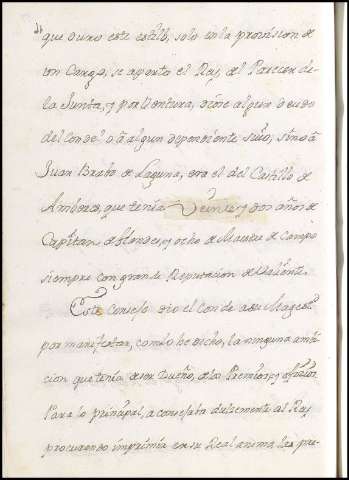 que duro este estilo, solo en la provision de
un Cargo, se aparto el Rey, del Parecer de
la Junta, y por Ventura, dióse algun deudo
del Conde? o à algun dependiente suio, sino à
Juan Brabo de Laguna, era el del Castillo de
Amberes, que tenía Veinte y dos años de
Capitan de flandes, y ocho de Maestre de Campo
siempre con grande Reputacion de Valiente.
Este Consejo dio el Conde a su Magestd
por manifestar, como he dicho, la ninguna ambi
cion que tenía de ser Dueño, de los Premios, y
Para lo principal, aconsejaba dulcemente al Rey
procurando imprimir en su Real animo, les pre-